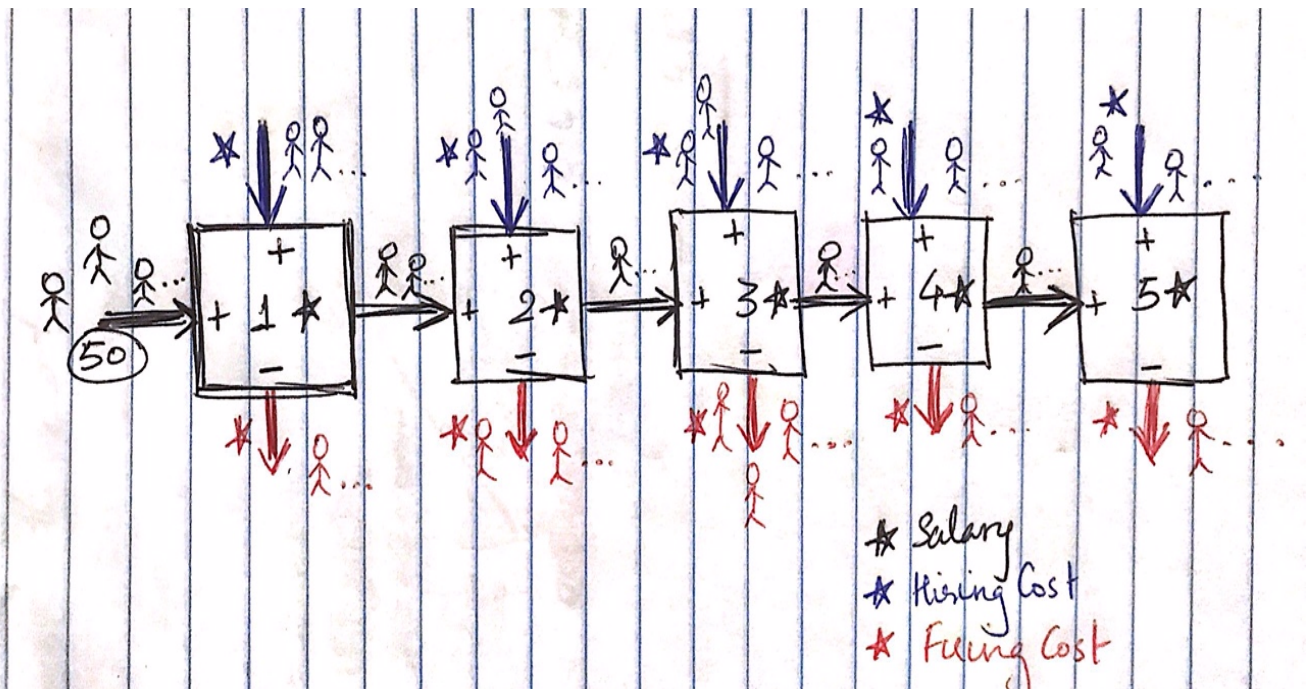 + + + + +
+ 1 + 2 + 3 + 4 + 5
50 - - - - -
Salary
Hiring Cost
Firing Cost